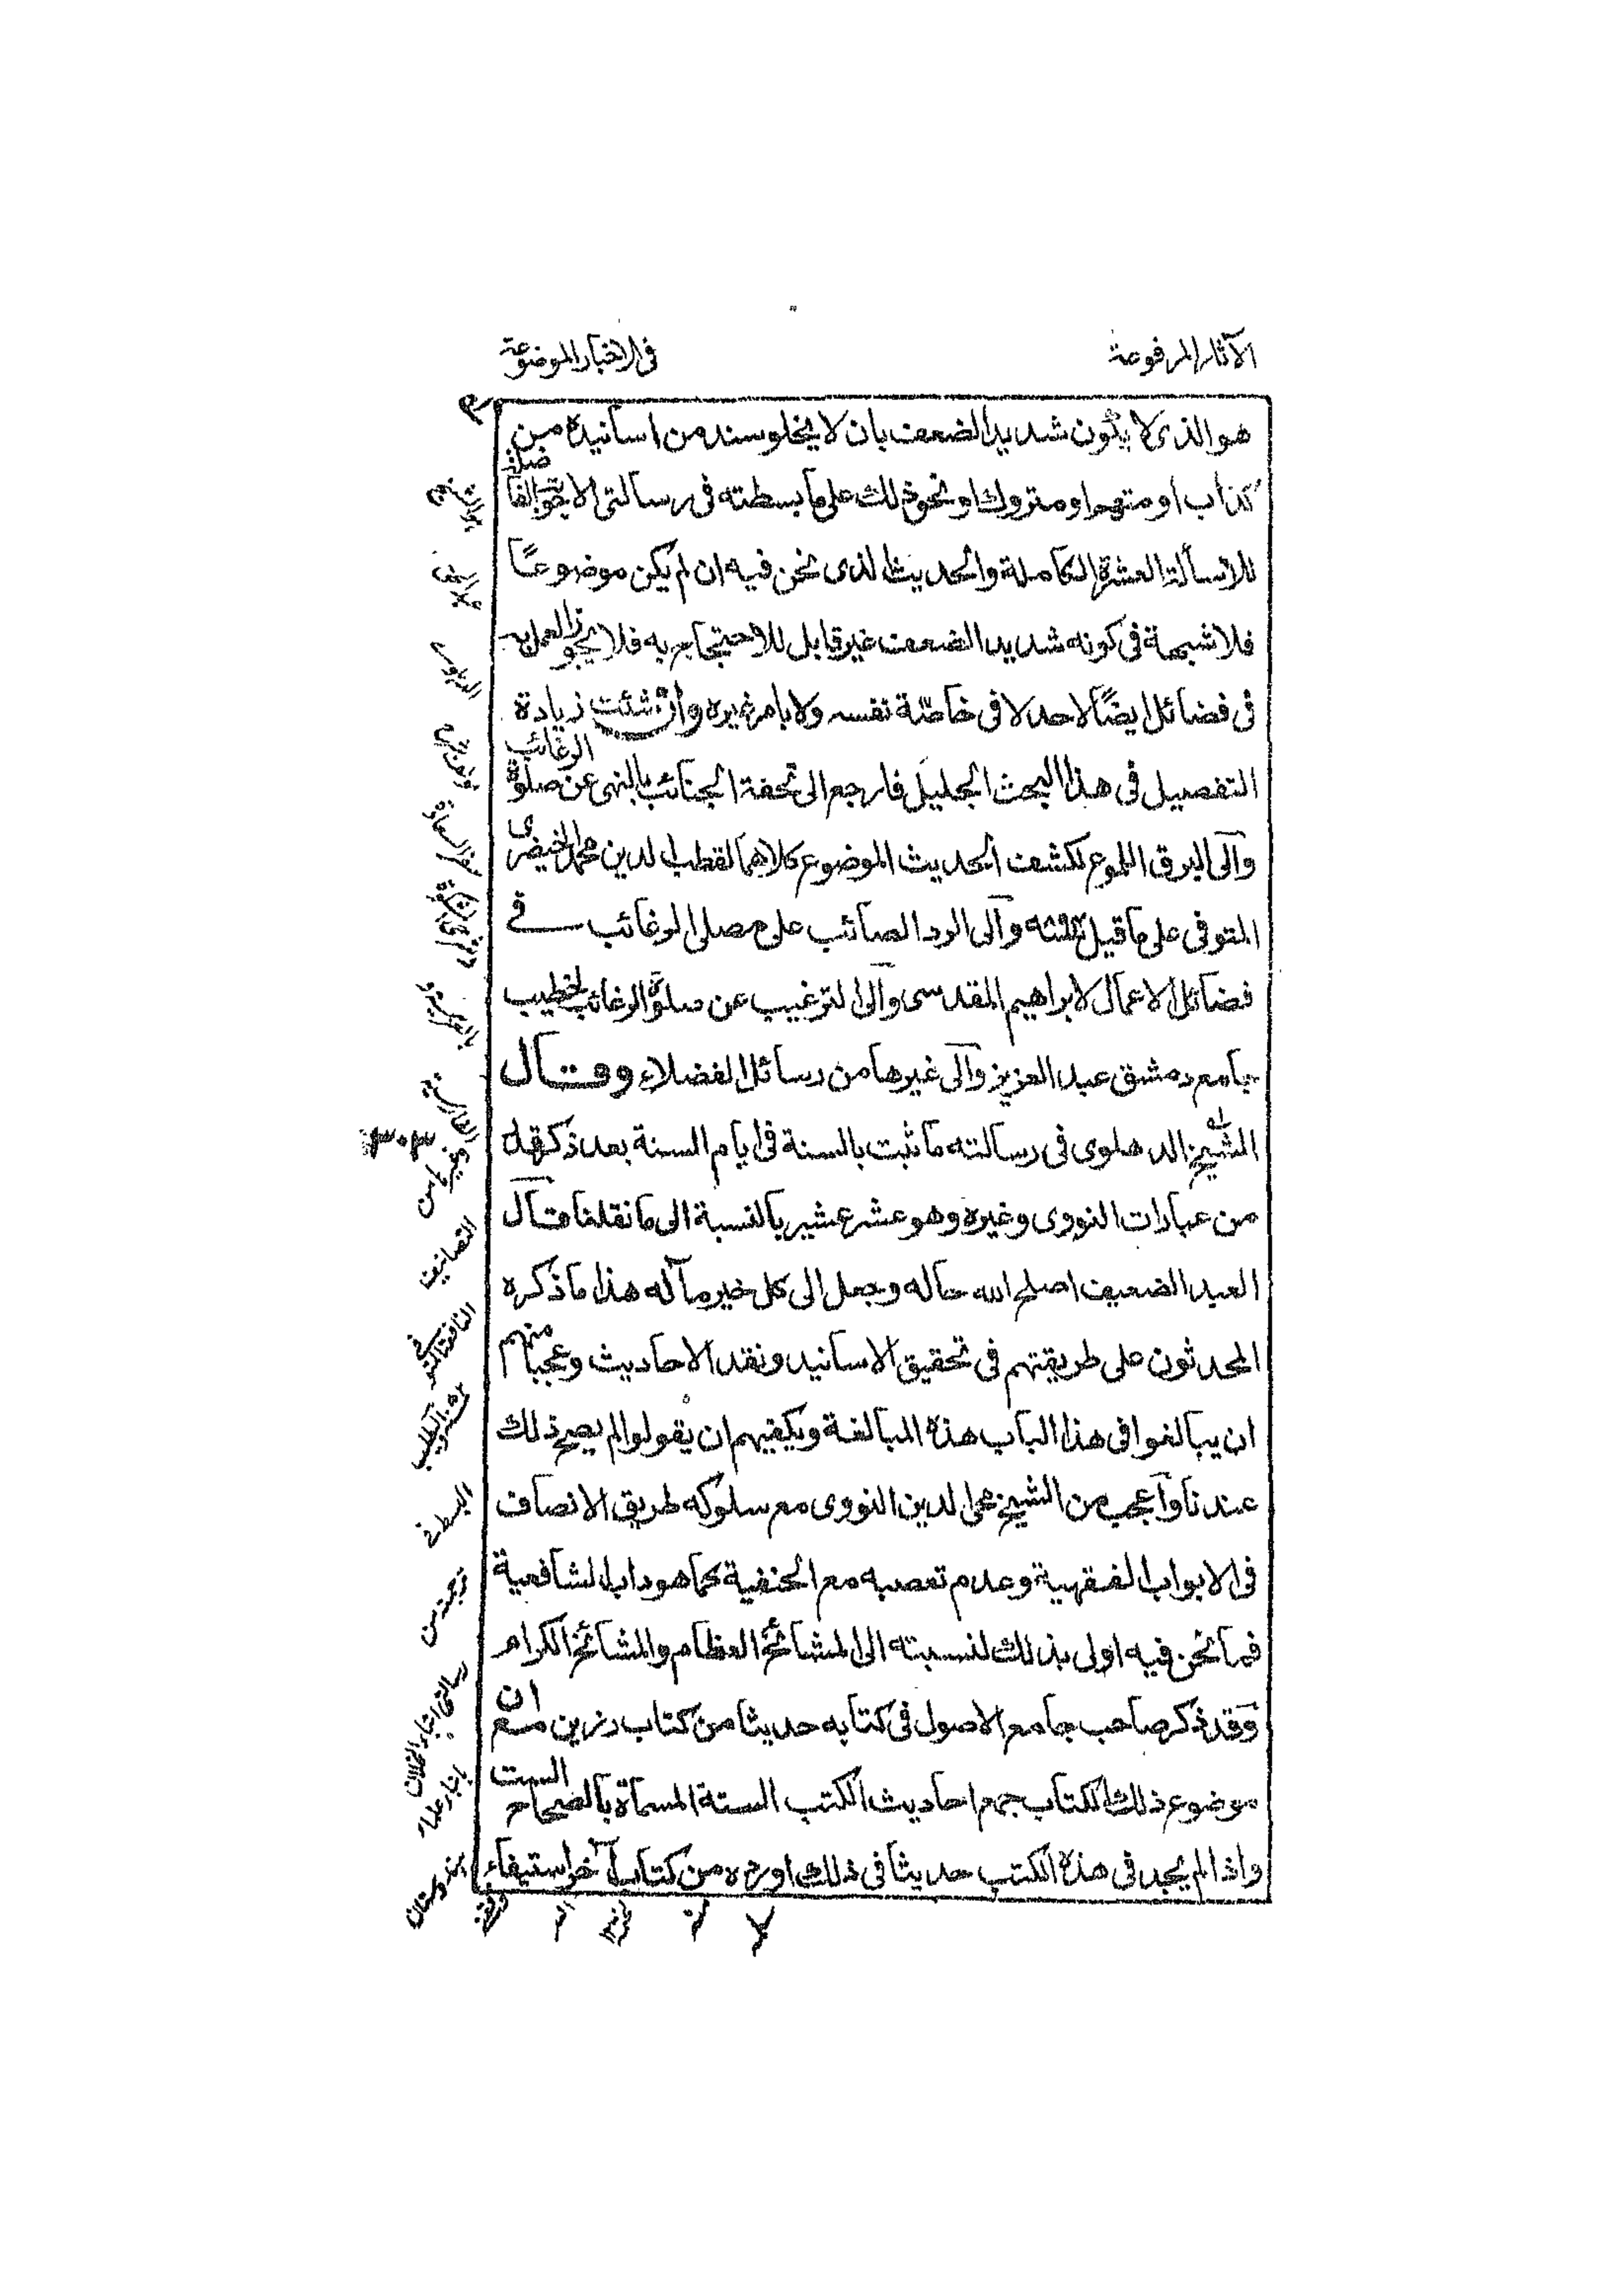 الآثار المرفوعة
فی الاخبار الموضوعة
هو الذی لا یکون شدید الضعف بان لا یخلو سند من اسانیدہ من
کذاب او متهم او متروک او نحو ذلک علی ما بسطته فی رسالتی الاجوبة الفاضلة
للاسألة العشرة الکاملة والحدیث الذی نحن فیه ان لم یکن موضوعًا
فلا شبهة فی کونه شدید الضعف غیر قابل للاحتجاج به فلا یجوز العمل به
فی فضائل ایضًا لاحد لا فی خاصّة نفسه ولا بامر غیره وان شئت زیادة
التفصیل فی هذا البحث الجلیل فارجع الی تحفة الجنائب بالنهی عن صلوٰة الرغائب
والی البرق اللموع لکشف الحدیث الموضوع کلاهما لقطب الدین محمد الخیضری
المتوفی علی ما قیل والی الرد الصائب علی مصلی الرغائب فی
فضائل الاعمال لابراهیم المقدسی والی الترغیب عن صلوٰة الرغائب لخطیب
جامع دمشق عبد العزیز والی غیرها من رسائل الفضلاء وقال
الشیخ الدهلوی فی رسالته ما ثبت بالسنة فی ایام السنة بعد ذکر
من عبارات النووی وغیره وهو عشر عشیر بالنسبة الی ما نقلنا قال
العبد الضعیف اصلح الله حاله وجعل الی کل خیر مآله هذا ما ذکره
المحدثون علی طریقتهم فی تحقیق الاسانید ونقد الاحادیث وعجبا منهم
ان یبالغوا فی هذا الباب هذه المبالغة ویکفیهم ان یقولوا لم یصح ذلک
عندنا واعجب من الشیخ محی الدین النووی مع سلوکه طریق الانصاف
فی الابواب الفقهیة وعدم تعصبه مع الحنفیة کما هو داب الشافعیة
فما نحن فیه اولی بذلک لنسبته الی المشائخ العظام والمشائخ الکرام
وقد ذکر صاحب جامع الاصول فی کتابه حدیثا من کتاب رزین مع ان
موضوع ذلک الکتاب جمع احادیث الکتب الستة المسماة بالصحاح الست
واذا لم یجد فی هذه الکتب حدیثا فی ذلک اورده من کتاب آخر استیفاء
وغیرها من
التصانیف
ترجمته من
هندوستان